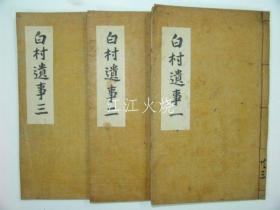 白村遺事一
白村遺事二
白村遺事三
江江火烧
共三